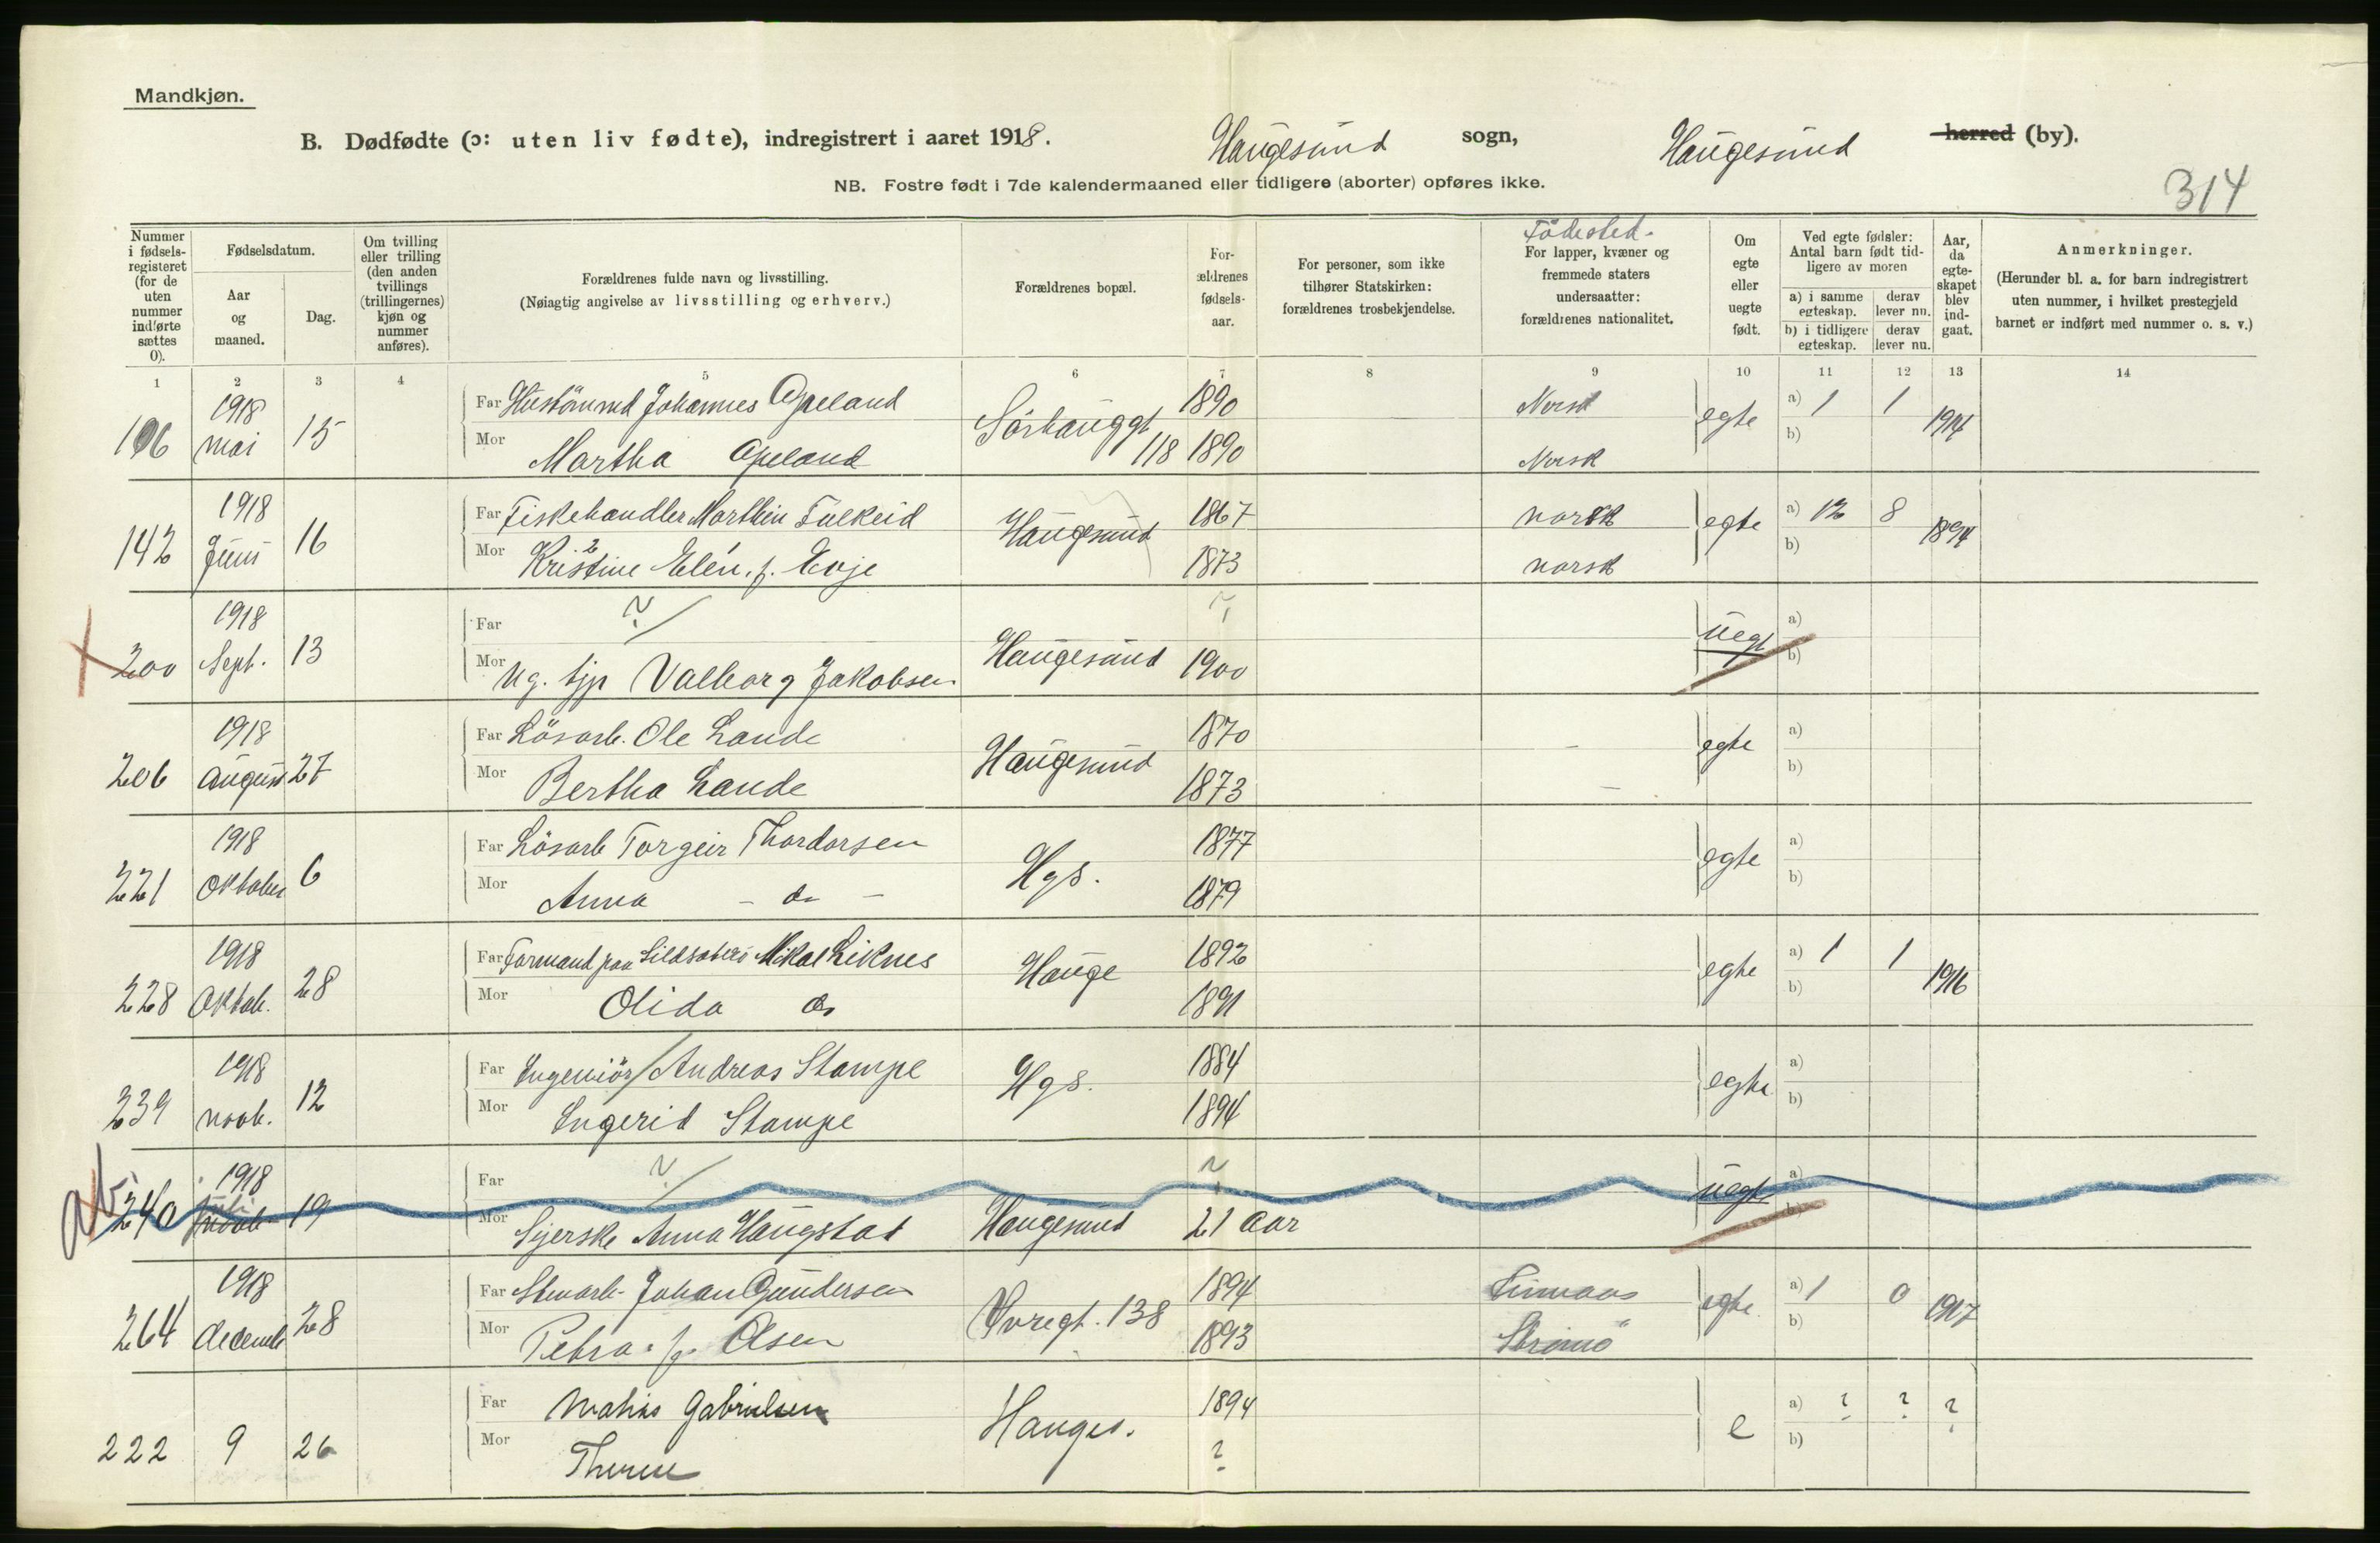 Mandkjøn.
B. Dødfødte (ɔ: uten liv fødte), indregistrert i aaret 1918. Haugesund sogn, Haugesund herred (by).
NB. Fostre født i 7de kalendermaaned eller tidligere (aborter) opføres ikke.
314
Nummer i fødsels-registeret (for de uten nummer indførte sættes 0).
Fødselsdatum.
Aar og maaned.
Dag.
Om tvilling eller trilling (den anden tvillings (trillingernes) kjøn og nummer anføres).
Forældrenes fulde navn og livsstilling.
(Nøiagtig angivelse av livsstilling og erhverv.)
Forældrenes bopæl.
For-ældrenes fødsels-aar.
For personer, som ikke tilhører Statskirken: forældrenes trosbekjendelse.
Födested.
For lapper, kvæner og fremmede staters undersaatter: forældrenes nationalitet.
Om egte eller uegte født.
Ved egte fødsler: Antal barn født tid-ligere av moren
a) i samme egteskap. derav lever nu.
b) i tidligere egteskap. derav lever nu.
Aar, da egte-skapet blev ind-gaat.
Anmerkninger.
(Herunder bl. a. for barn indregistrert uten nummer, i hvilket prestegjeld barnet er indført med nummer o. s. v.)
1 2 3 4 5 6 7 8 9 10 11 12 13 14
1918 Far Johannes Apeland 1890 Norsk a) 1 1
106 mai 15 Sörhauggt 118 egte 1914
Mor Martha Apeland 1890 Norsk b)
1918 Far Fiskehandler Marthin Fulkeid 1867 norsk a) 12 8
142 Juni 16 Haugesund egte 1894
Mor Kristine Elen. f. Evje 1873 norsk b)
1918 Far ? ? a)
200 Sept. 13 Haugesund uegt
Mor Ug. tjp Valborg Jakobsen 1900 b)
1918 Far Lösarb. Ole Lande 1870 - a)
206 August 27 Haugesund egte
Mor Bertha Lande 1873 - b)
1918 Far Lösarb Torgeir Thordorsen 1877 a)
221 Oktober 6 Hgs. egte
Mor Anna - do - 1879 b)
1918 Far Formand paa Mikal Liknes 1892 a) 1 1
228 Oktob. 28 Hauge egte 1916
Mor Olida do 1891 b)
1918 Far Ingeniör/Andreas Stampe 1884 a)
239 novb. 12 Hgs. egte
Mor Ingerid Stampe 1894 b)
ab 1918 Far ? ? a)
240 19 Haugesund uegte
Mor Syerske Anna Haugstad 21 Aar b)
1918 Far Johan Gundersen 1894 a) 1 0
264 decemb 28 138 egte 1917
Mor Petra. f. Olsen 1893 b)
Far Mahis Gabrielsen 1894 a) ? ? ?
222 9 26 Hauges. e
Mor Therese ? b)